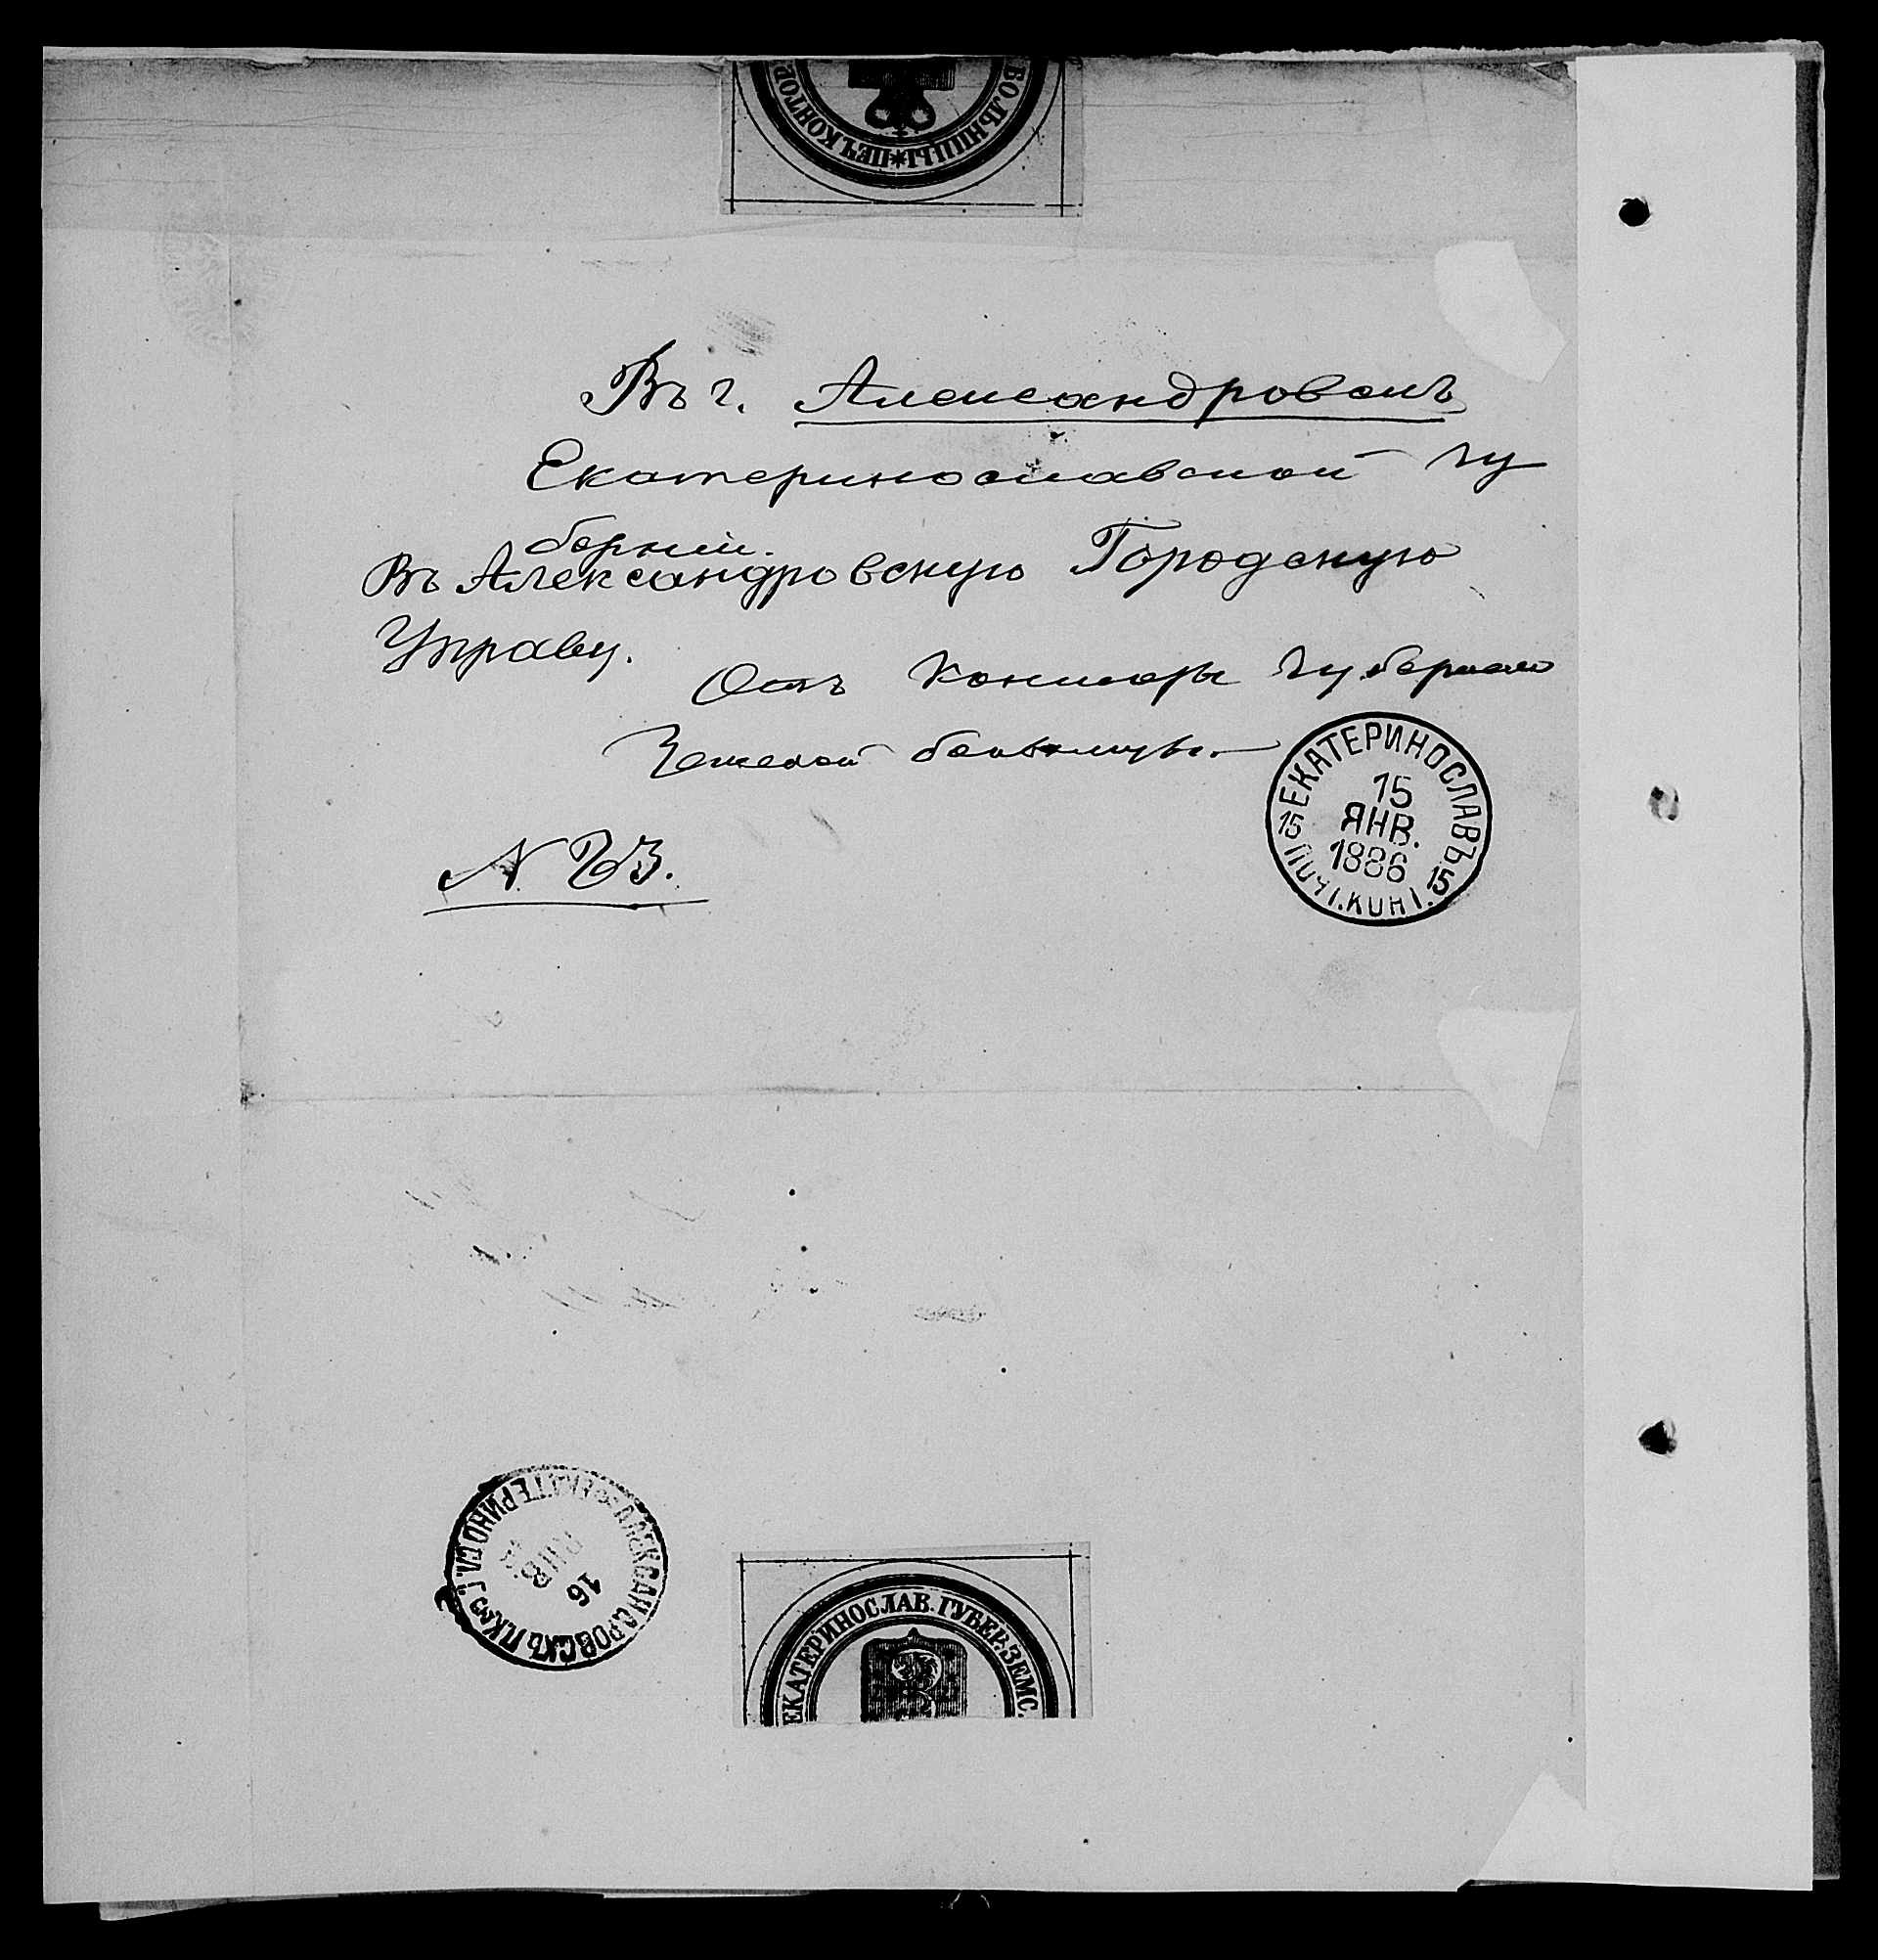 БОЛЬНИЦЫ * ПЕЧ. КОНТОР
Въ г. Александровскъ
Екатеринославской гу
берніи.
Въ Александровскую Городскую
Управу.
Отъ Конторы Губернско
Земской больницы.
ЕКАТЕРИНОСЛАВЪ
15
ЯНВ.
1886
15 ПОЧТ. КОНТ. 15
N 23.
АЛЕКСАНДРОВСКЪ П.К. ЕКАТЕРИНОСЛ. Г.
16
ЯНВ.
ЕКАТЕРИНОСЛАВ. ГУБЕР. ЗЕМС.